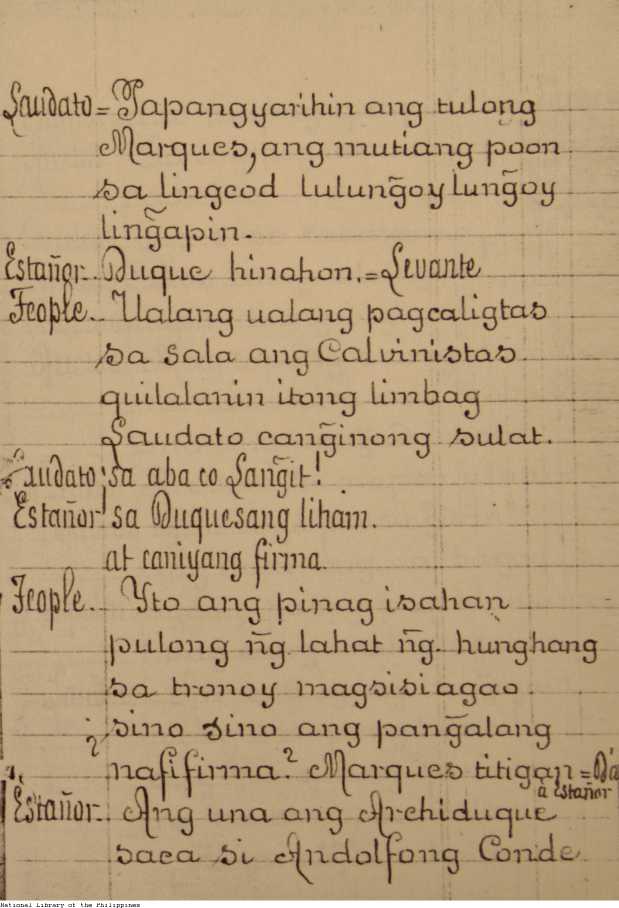 Laudato = Papangyarihin ang tulong
Marques, ang mutiang poon
sa lingcod lulung̃oy lung̃oy
ling̃apin.
Estañor. Duque hinahon. = Levante
Feople. Ualang ualang pagcaligtas
sa sala ang Calvinistas
quilalanin itong limbag
Laudato cang̃inong sulat.
Laudato ¡sa aba co Lang̃it!
Estañor ¡sa Duquesang liham.
at caniyang firma.
Feople. Yto ang pinag isahan
pulong ñg lahat ñg. hunghang
sa tronoy magsisiagao.
¿sino sino ang pang̃alang
nafifirma? Marques titigan = Dá
á Estañor
Estañor. Ang una ang Archiduque
saca si Andolfong Conde
National Library of the Philippines